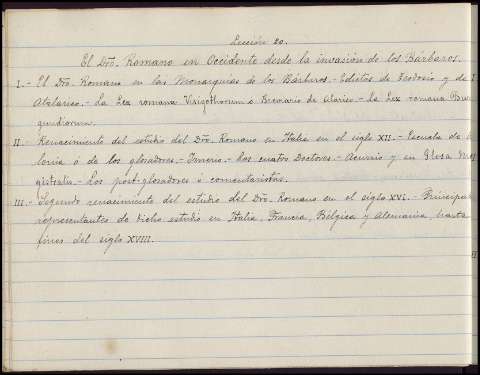 Lección 20.
El Dro. Romano en Occidente desde la invasión de los Bárbaros.
I.- El Dro. Romano en las Monarquías de los Bárbaros.- Edictos de Teodosio y de
Atalarico.- La Lex romana Visigothorum o Breviario de Alarico.- La Lex romana Bur
gundiorum.
II.- Renacimiento del estudio del Dro. Romano en Italia en el siglo XII.- Escuela de
lonia ó de los glosadores.- Irnerio.- Los cuatro Doctores.- Acursio y su Glosa Mag
gistralis.- Los post-glosadores ó comentaristas.
III.- Segundo renacimiento del estudio del Dro. Romano en el siglo XVI.- Principa
representantes de dicho estudio en Italia, Francia, Bélgica y Alemania, hasta
fines del siglo XVIII.